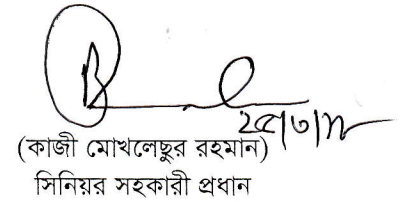 (কাজী মোখলেছুর রহমান)
সিনিয়র সহকারী প্রধান